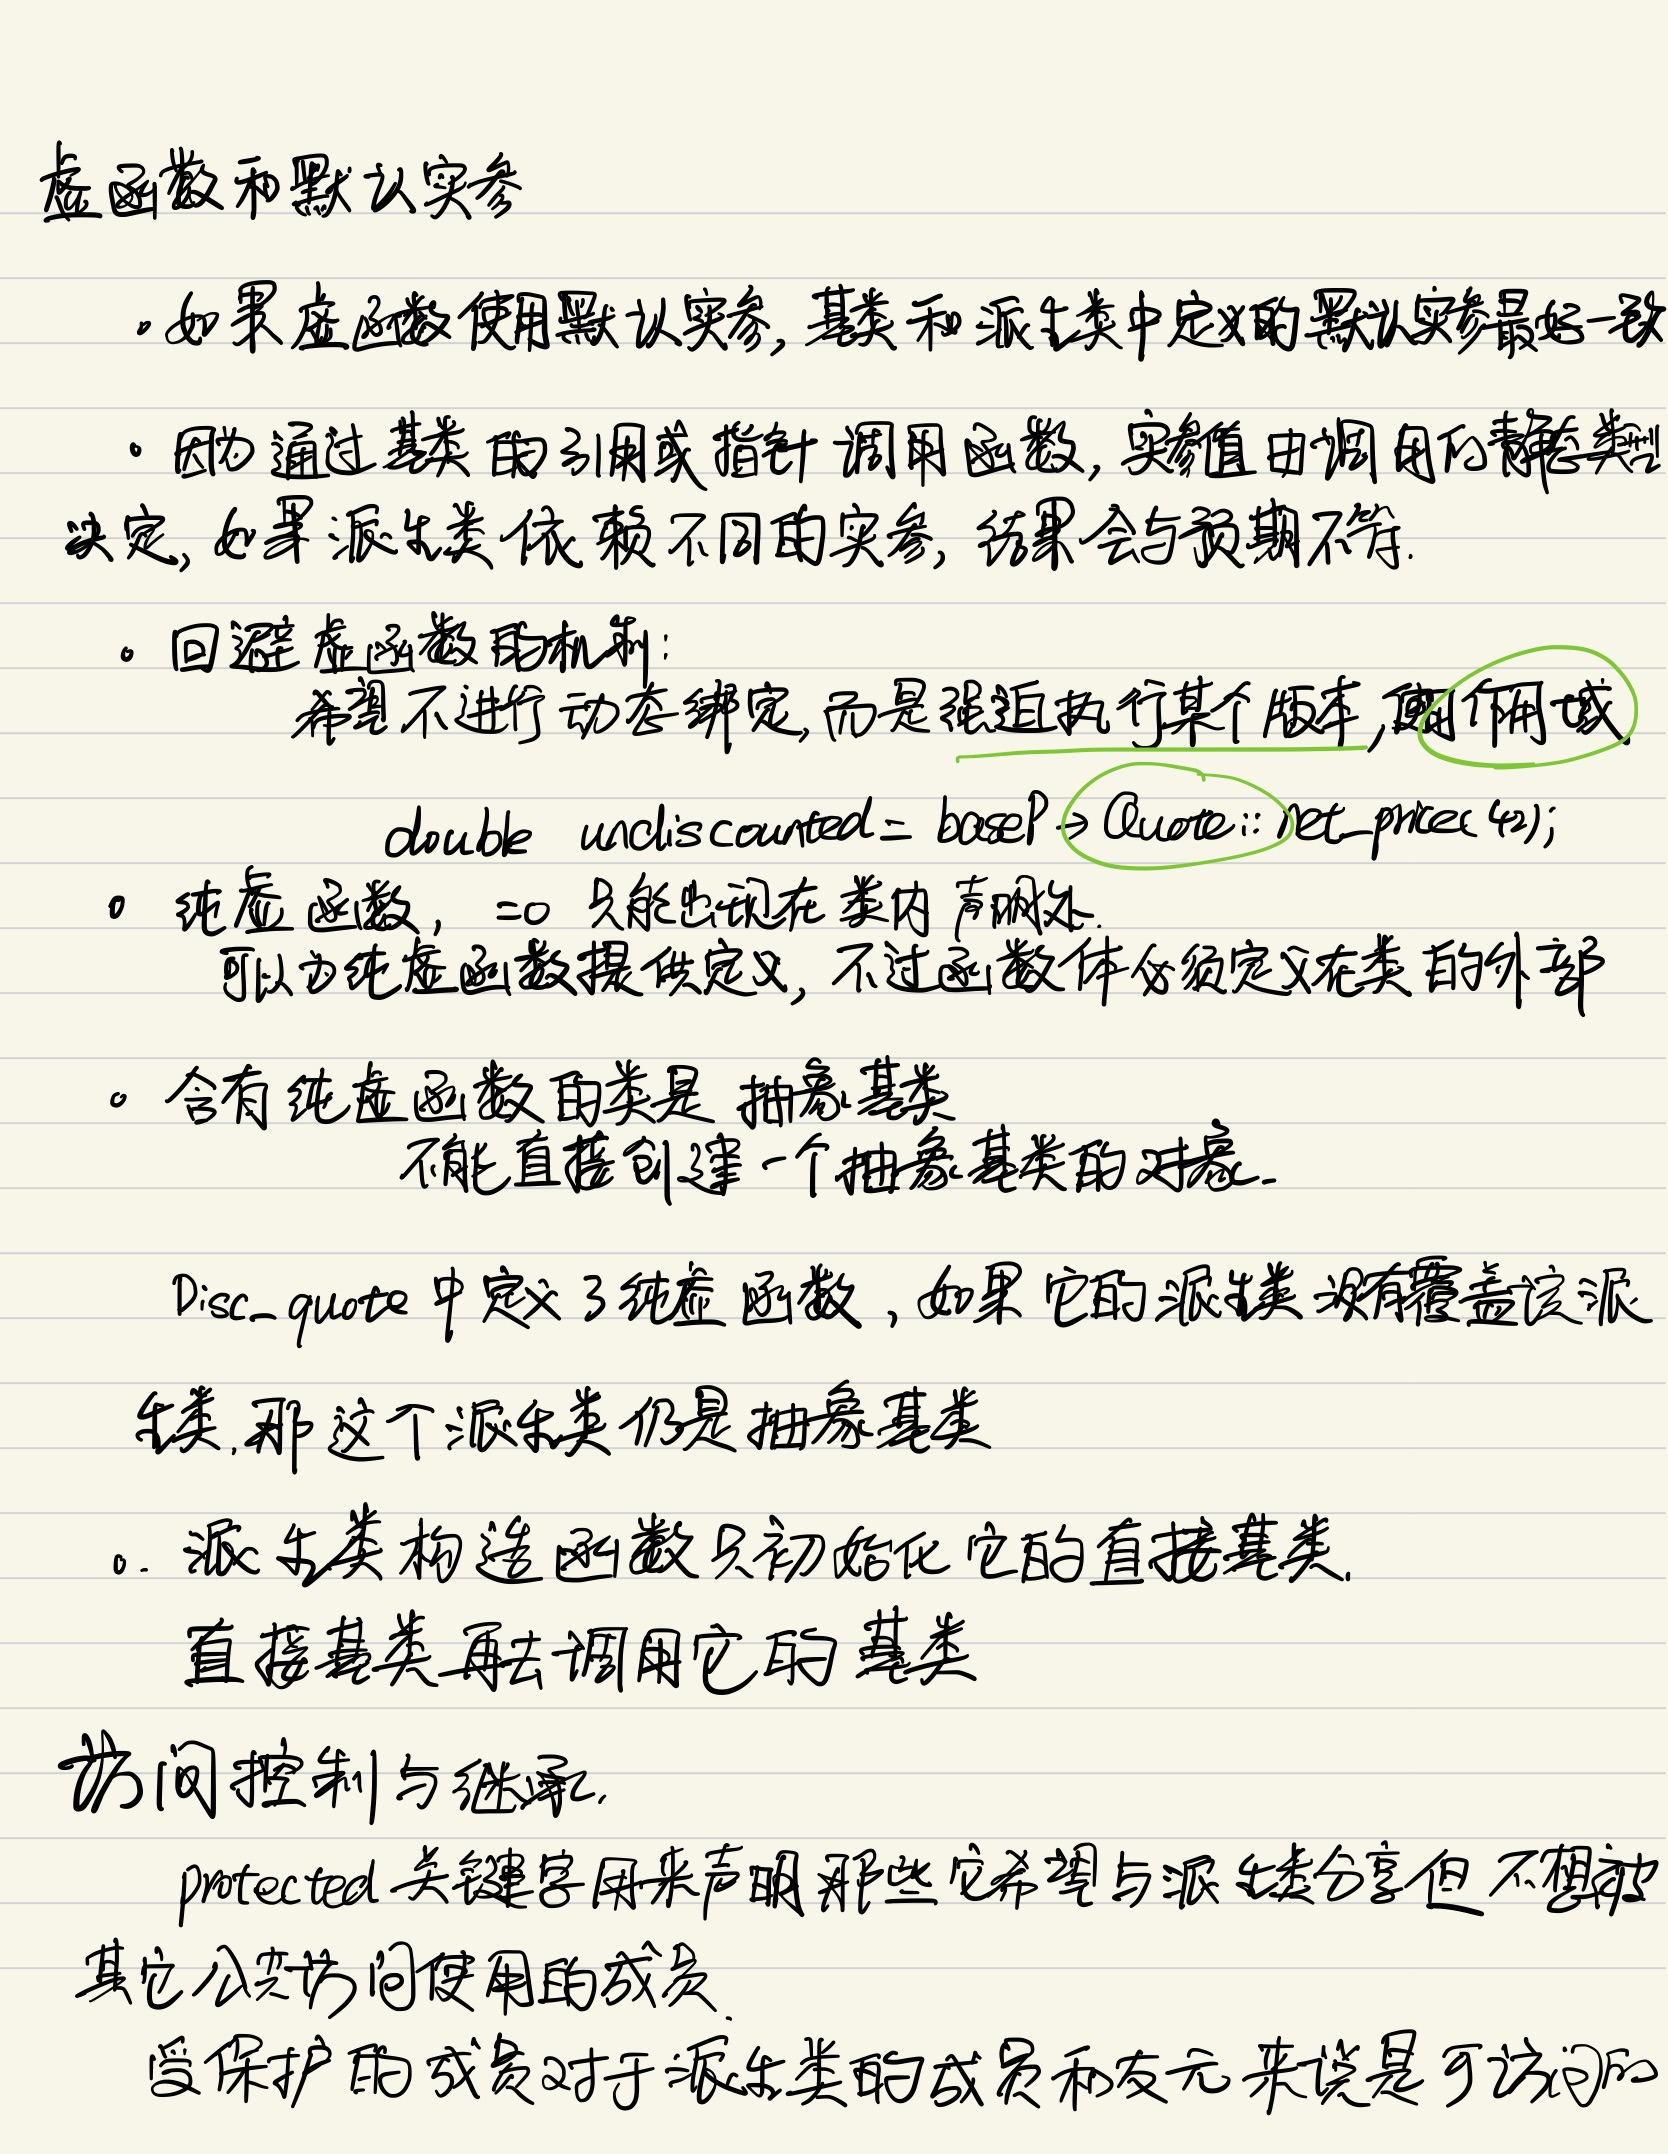 虚函数和默认实参
。如果虚函数使用默认实参,基类和派生类中定义的默认实参最好一致
。因为通过基类的引用或指针调用函数,实参值由调用的静态类型
决定,如果派生类依赖不同的实参,结果会与预期不符.
。回避虚函数的机制:
希望不进行动态绑定,而是强迫执行某个版本,使用作用域
double undiscounted = baseP → Quote::net_price(42);
。纯虚函数, =0 只能出现在类内声明处.
可以为纯虚函数提供定义,不过函数体必须定义在类的外部
。含有纯虚函数的类是抽象基类
不能直接创建一个抽象基类的对象.
Disc_quote中定义了纯虚函数,如果它的派生类没有覆盖该派
生类.那这个派生类仍是抽象基类
。. 派生类构造函数只初始化它的直接基类.
直接基类再去调用它的基类
访问控制与继承.
protected关键字用来声明那些它希望与派生类分享但不想被
其它公共访问使用的成员.
受保护的成员对于派生类的成员和友元来说是可访问的